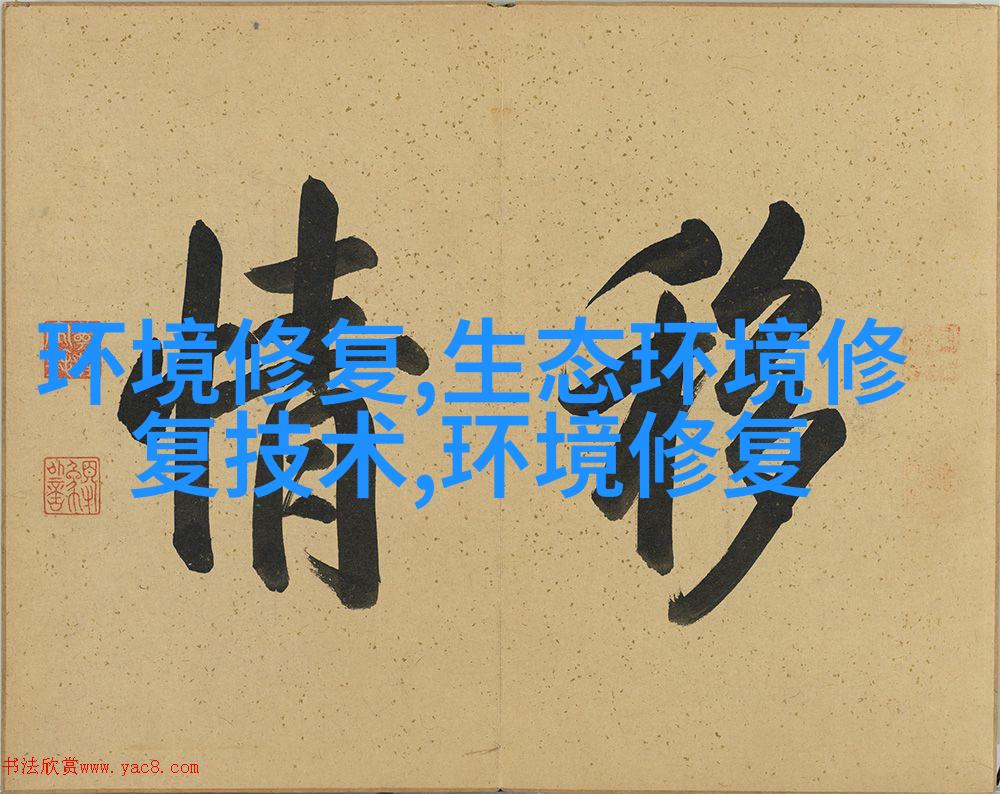 移情
环境修复,生态环境修
复技术,环境修复
书法欣赏www.yac8.com